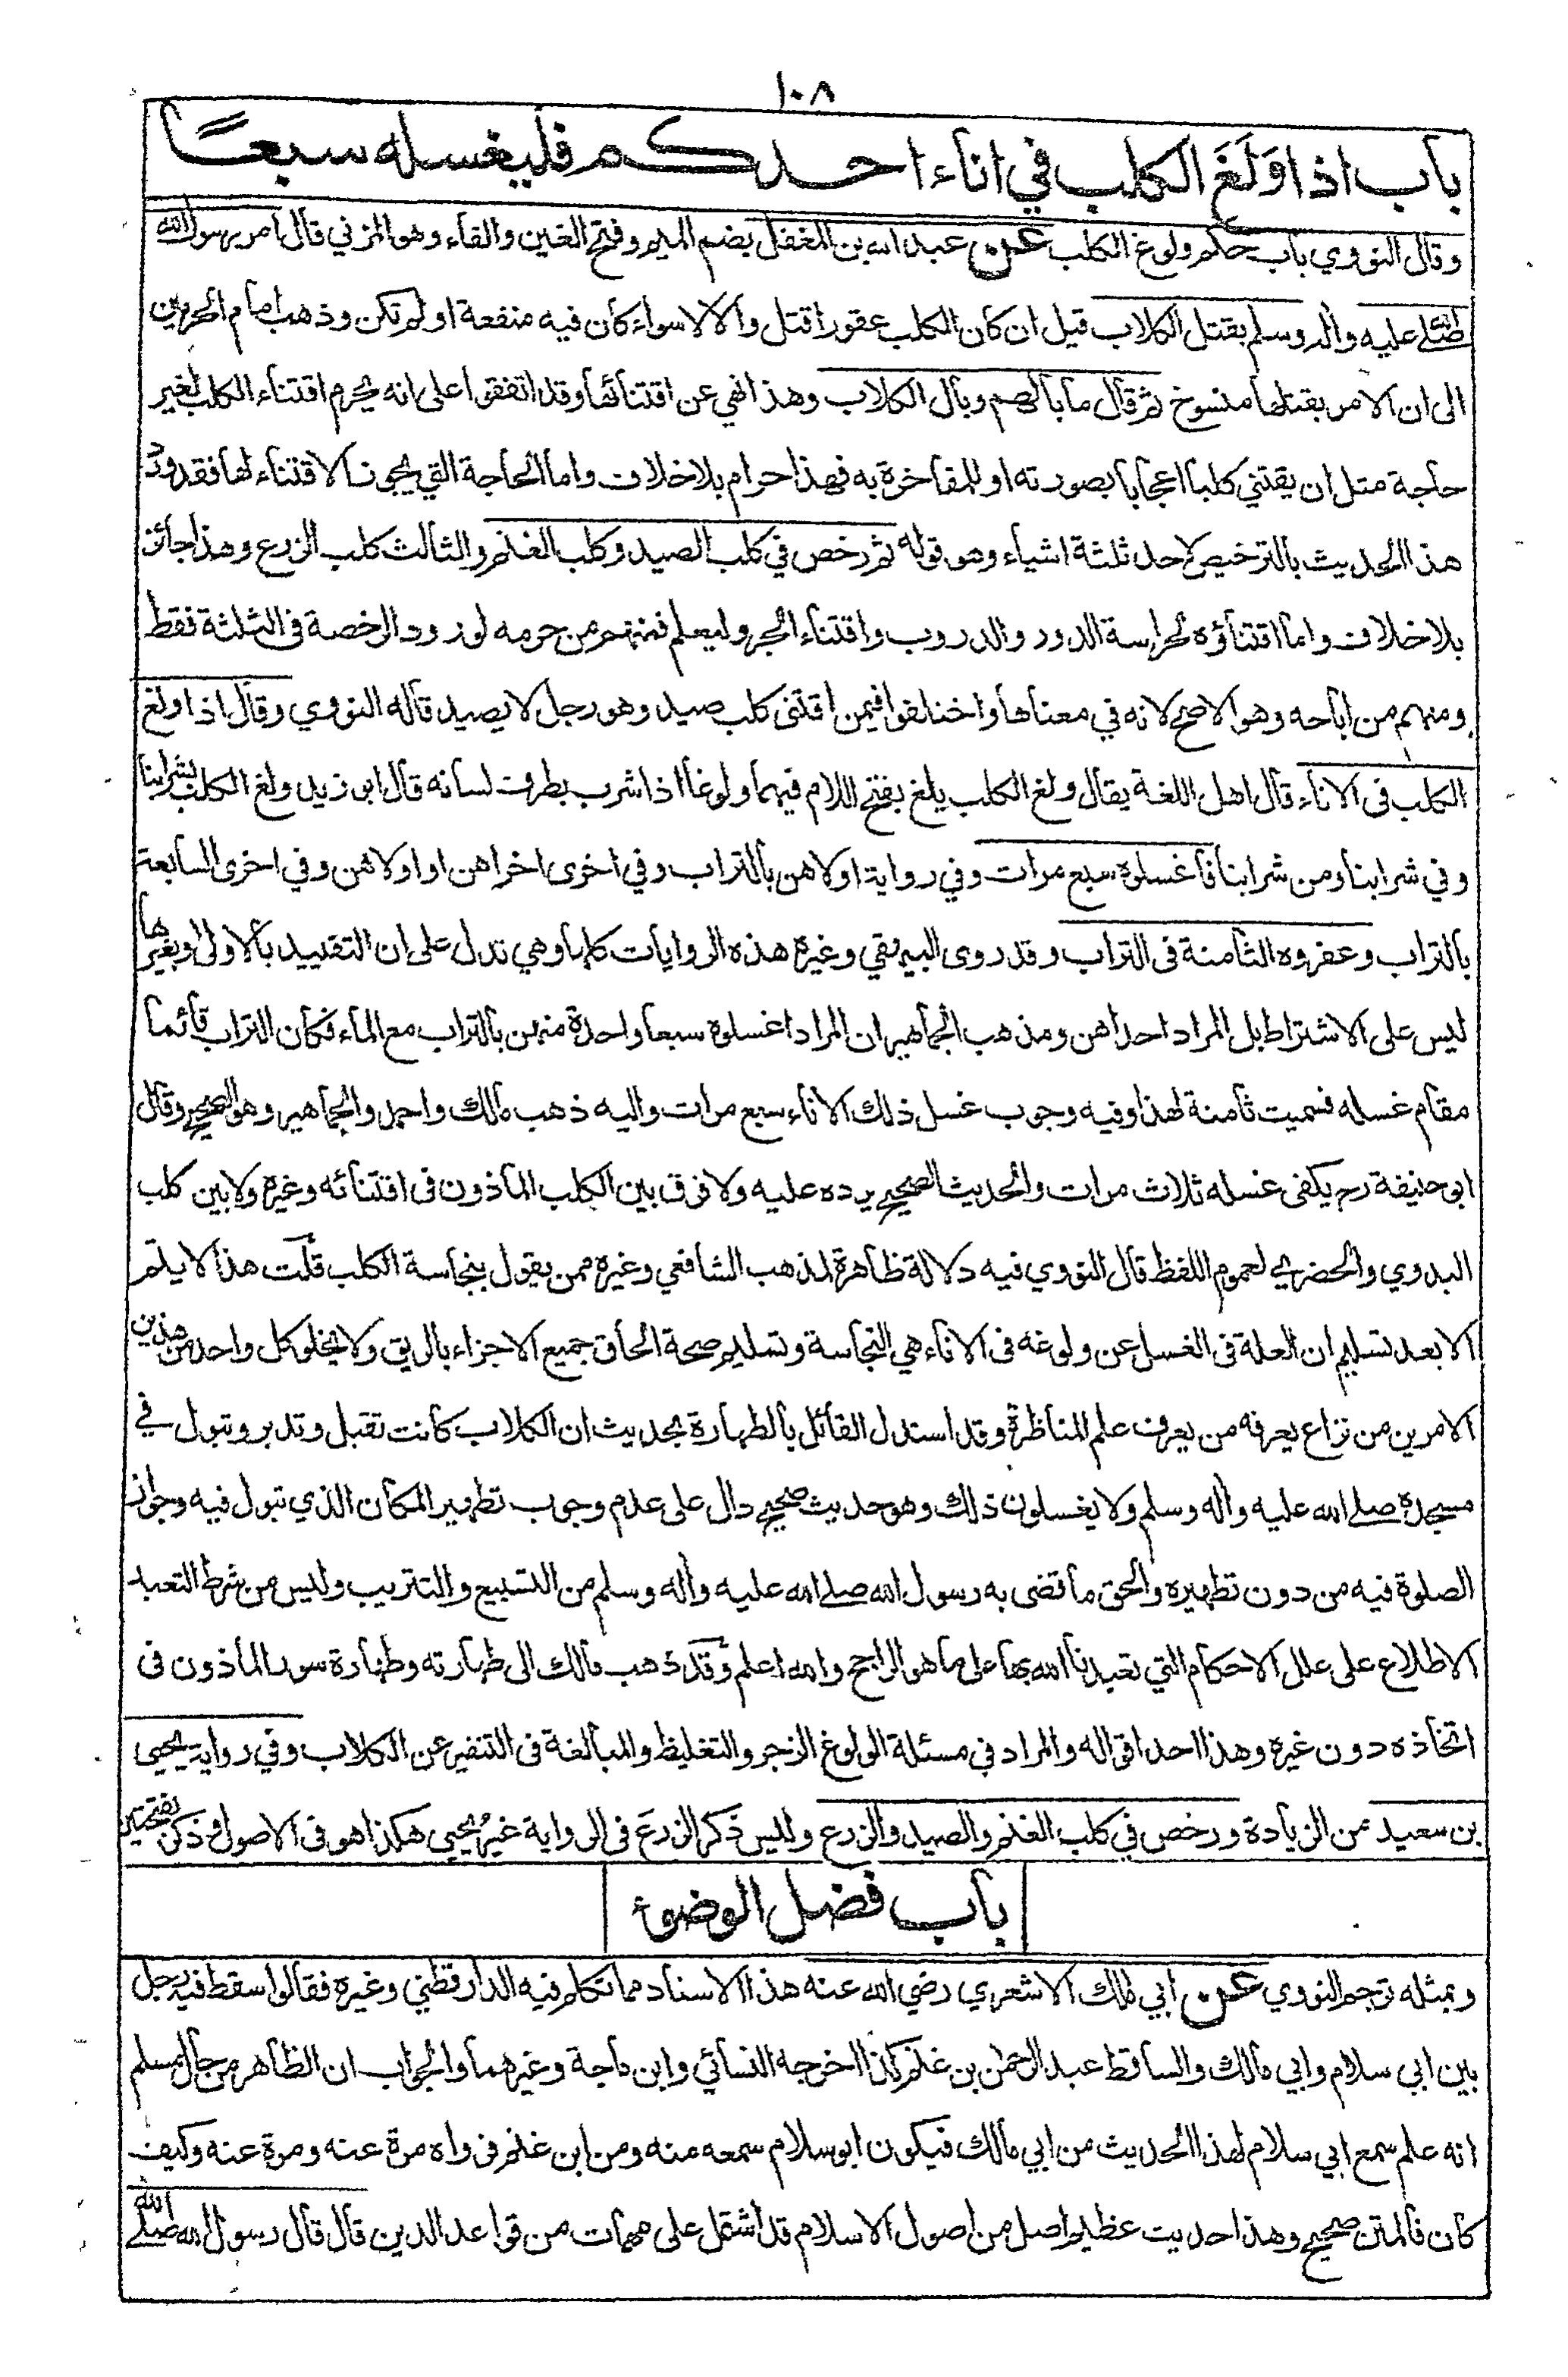 ١٠٨
باب اذا وَلَغَ الكلب في اناء احدكم فليغسله سبعًا
وقال النووي باب حكم ولوغ الكلب عن عبد الله بن المغفل بضم الميم وفتح الغين والفاء وهو المزني قال امر رسول الله
صلى الله عليه واله وسلم بقتل الكلاب قيل ان كان الكلب عقورا قتل والا لا سواء كان فيه منفعة اولم تكن وذهب امام الحرمين
الى ان الامر بقتلها منسوخ ثم قال ما بالهم وبال الكلاب وهذا نهي عن اقتنائها وقد اتفقوا على انه يحرم اقتناء الكلب لغير
حاجة مثل ان يقتني كلبا اعجابا بصورته او للمفاخرة به فهذا حرام بلا خلاف واما الحاجة التي يجوز الاقتناء لها فقد ورد
هذا الحديث بالترخيص لاحد ثلثة اشياء وهو قوله ثم رخص في كلب الصيد وكلب الغنم والثالث كلب الزرع وهذا جائز
بلا خلاف واما اقتناؤه لحراسة الدور والدروب واقتناء الجرو ليعلم فمنهم من حرمه لورود الرخصة فى الثلثة فقط
ومنهم من اباحه وهو الاصح لانه في معناها واختلفوا فيمن اقتنى كلب صيد وهو رجل لا يصيد قاله النووي وقال اذا ولغ
الكلب فى الاناء قال اهل اللغة يقال ولغ الكلب يلغ بفتح اللام فيهما ولوغا اذا شرب بطرف لسانه قال ابو زيد ولغ الكلب بشرابنا
وفي شرابنا ومن شرابنا فاغسلوه سبع مرات وفي رواية اولاهن بالتراب وفي اخرى اخراهن او اولاهن وفي اخرى السابعة
بالتراب وعفروه الثامنة فى التراب وقد روى البيهقي وغيره هذه الروايات كلها وهي تدل على ان التقييد بالاولى او بغيرها
ليس على الاشتراط بل المراد احداهن ومذهب الجماهير ان المراد اغسلوه سبعا واحدة منهن بالتراب مع الماء فكان التراب قائما
مقام غسله فسميت ثامنة لهذا وفيه وجوب غسل ذلك الاناء سبع مرات واليه ذهب مالك واحمد والجماهير وهو الصحيح وقال
ابو حنيفة رح يكفى غسله ثلاث مرات والحديث الصحيح يرده عليه ولا فرق بين الكلب الماذون فى اقتنائه وغيره ولا بين كلب
البدوي والحضري لعموم اللفظ قال النووي فيه دلالة ظاهرة لمذهب الشافعي وغيره ممن يقول بنجاسة الكلب قلت هذا لا يتم
الا بعد تسليم ان العلة فى الغسل عن ولوغه فى الاناء هي النجاسة وتسليم صحة الحاق جميع الاجزاء بالريق ولا يخلو كل واحد من هذين
الامرين من نزاع يعرفه من يعرف علم المناظرة وقد استدل القائل بالطهارة بحديث ان الكلاب كانت تقبل وتدبر وتبول في
مسجده صلى الله عليه واله وسلم ولا يغسلون ذلك وهو حديث صحيح دال على عدم وجوب تطهير المكان الذي تبول فيه وجواز
الصلوة فيه من دون تطهيره والحق ما قضى به رسول الله صلى الله عليه واله وسلم من التسبيع والتتريب وليس من شرط التعبد
الاطلاع على علل الاحكام التي تعبدنا الله بها على ما هو الراجح والله اعلم وقد ذهب مالك الى طهارته وطهارة سور الماذون فى
اتخاذه دون غيره وهذا احد اقواله والمراد في مسئلة الولوغ الزجر والتغليظ والمبالغة فى التنفير عن الكلاب وفي رواية يحيى
بن سعيد من الزيادة ورخص في كلب الغنم والصيد والزرع وليس ذَكَر الزرعَ فى الرواية غيرُ يحيى هكذا هو فى الاصول وذكر بفتحتين
باب فضل الوضوء
وبمثله ترجم النووي عن ابي مالك الاشعري رضي الله عنه هذا الاسناد مما تكلم فيه الدارقطني وغيره فقالوا سقط فيه رجل
بين ابي سلام وابي مالك والساقط عبد الرحمن بن غنم كذا اخرجه النسائي وابن ماجة وغيرهما والجواب ان الظاهر من حال مسلم
انه علم سمع ابي سلام لهذا الحديث من ابي مالك فيكون ابو سلام سمعه منه ومن ابن غنم فرواه مرة عنه ومرة عنه وكيف
كان فالمتن صحيح وهذا حديث عظيم اصل من اصول الاسلام قد اشتمل على مهمات من قواعد الدين قال قال رسول الله صلى الله